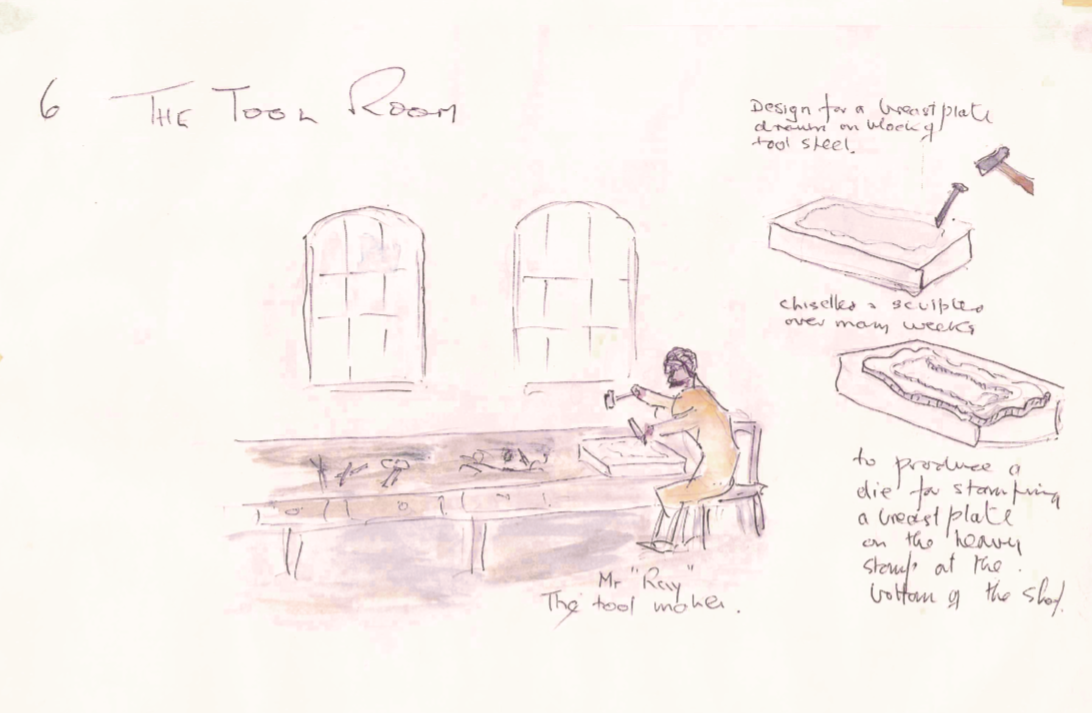 6 THE TOOL ROOM
Design for a breastplate
drawn on block of
tool steel.
chiselled & sculpted
over many weeks
to produce a
die for stamping
a breastplate
on the heavy
stamp at the
bottom of the shop.
Mr "Ray"
The tool maker.